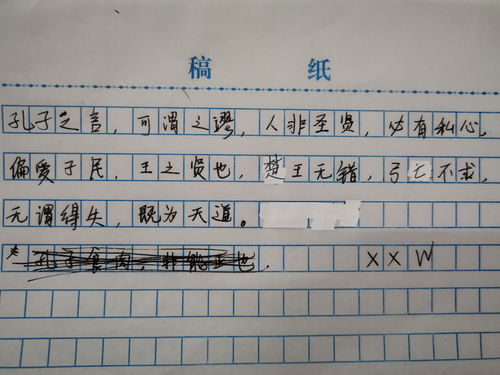 稿 纸
孔子之言，可谓之谬，人非圣贤，必有私心，
偏爱子民，王之贤也，楚王无错，弓亡不求，
无谓得失，既为天道。
XXW